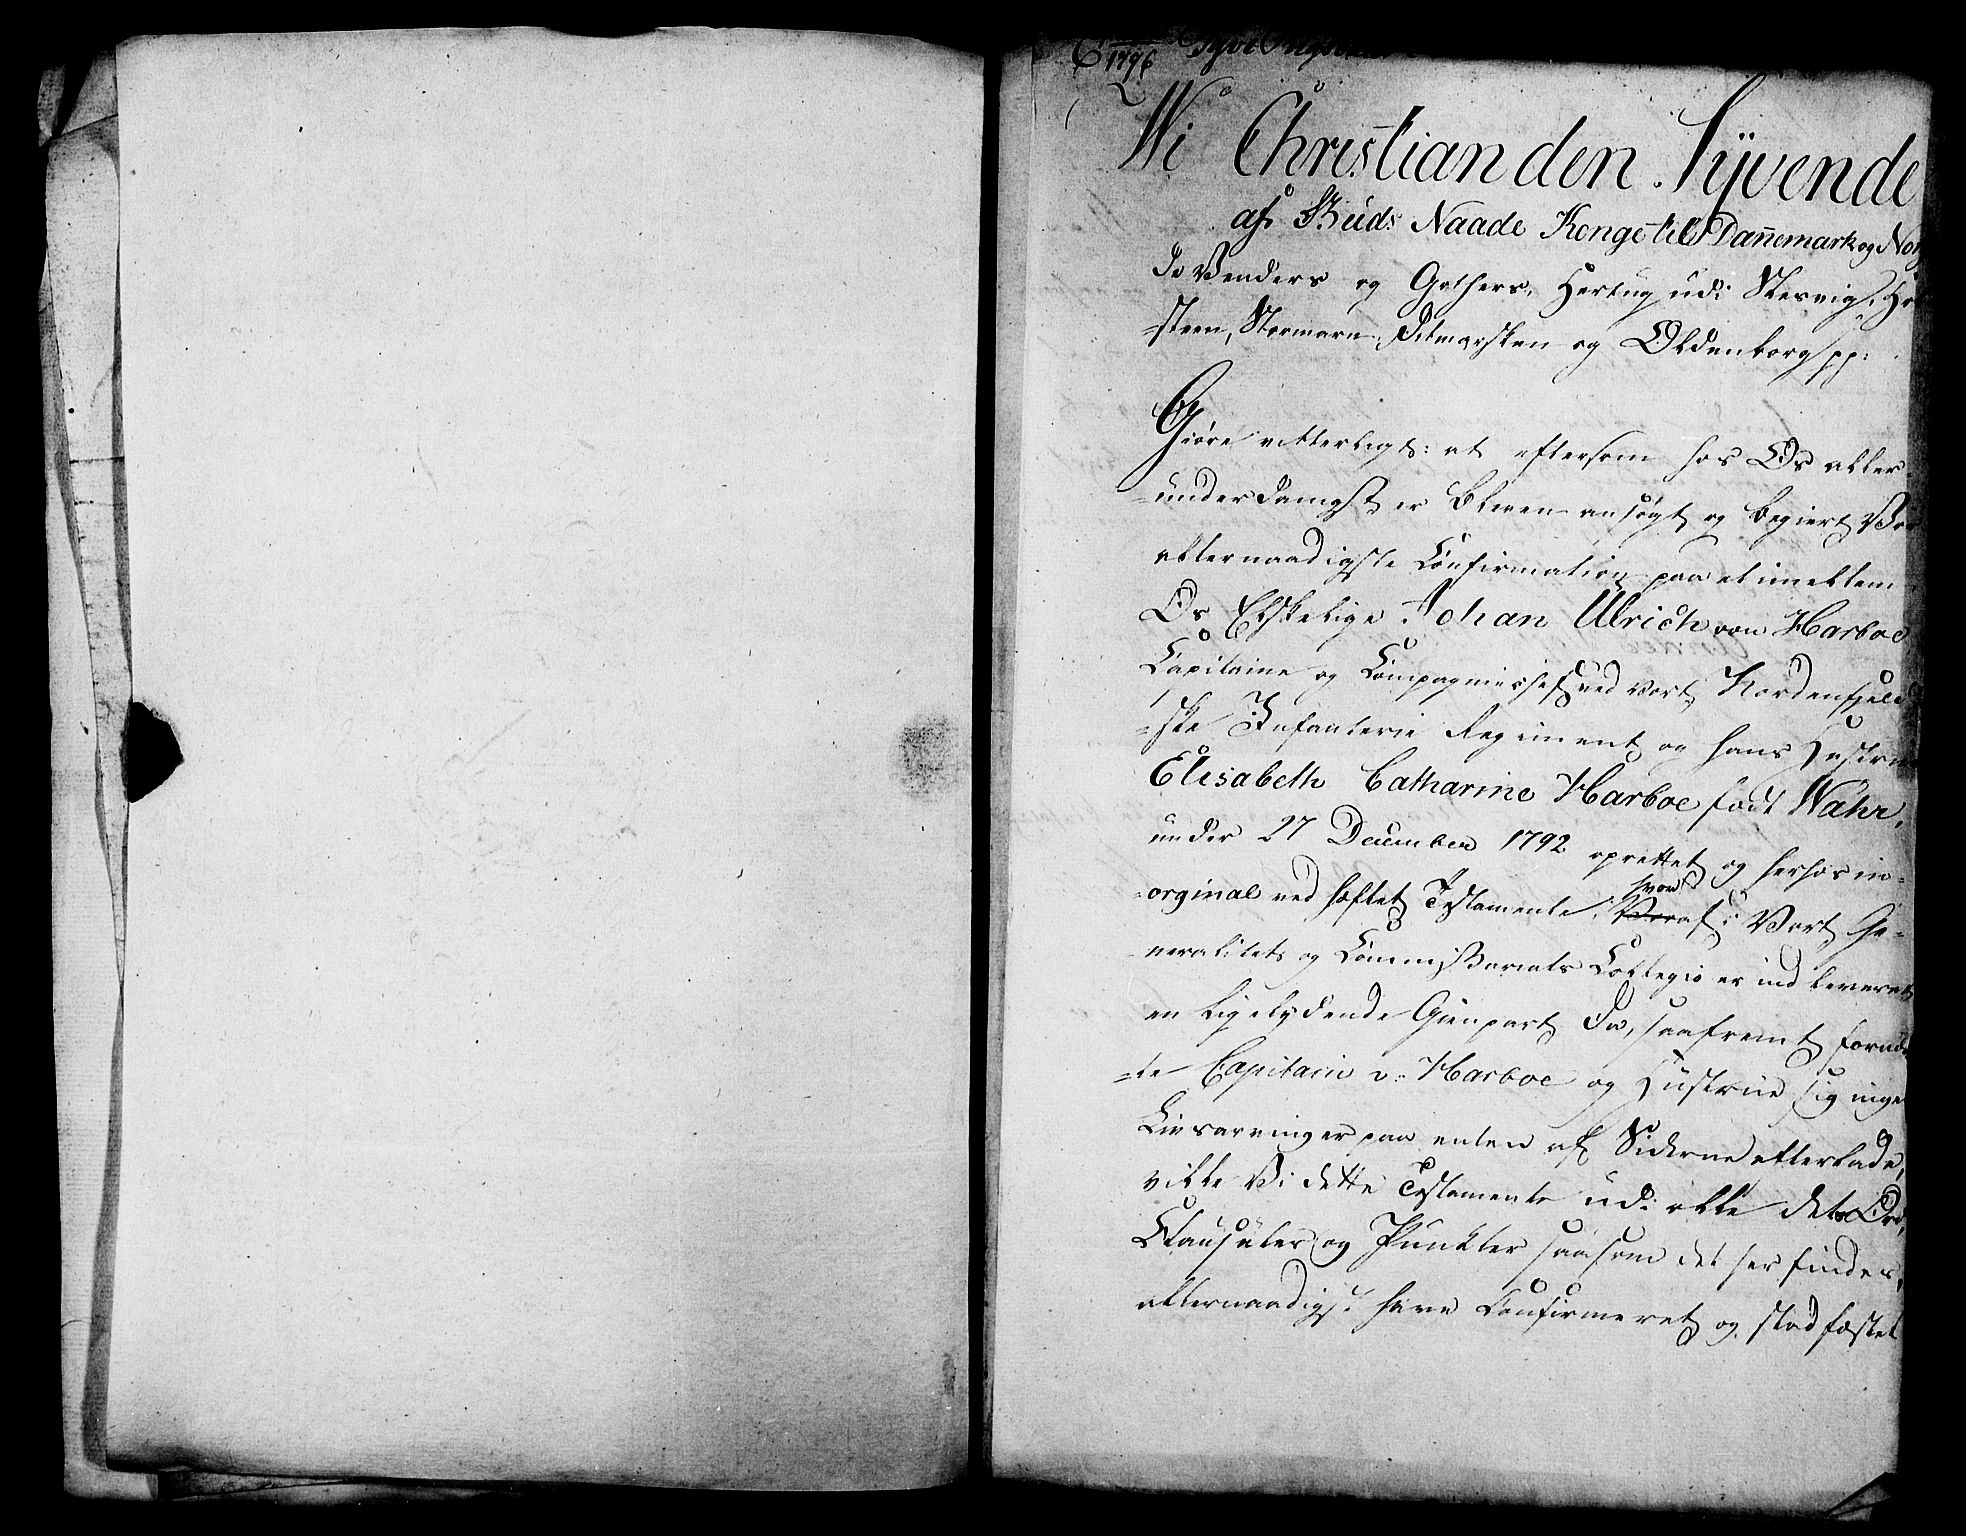 1796
Wi Christian den Syvende
af Guds Naade Konge til Dannemark og Nor
de Venders og Gothers, Hertug udi Slesvig, Hol
=steen, Stormarn Ditmarsken og Oldenborg pp:
Giøre vitterligt: at eftersom hos Os aller
=underdanigst er bleven ansøgt og begiert Vor
allernaadigste Confirmation paa et imellem
Os Elskelige Johan Ulrich von Harboe
Capitaine og Compagniechef ved vort Nordenfjeld
=ske Infanterie Regiment og hans Hustrue
Elisabeth Catharine Harboe født Wahr,
under 27 December 1792 oprettet og herhos in=
=orginal ved hæftet Testamente, hvoraf i Vort Ge=
neralitets og Commissariats Collegio er indleveret
en ligelydende Gienpart Da, saafremt forned
=te Capitain v: Harboe og Hustrue sig inge
Livsarvinger paa enten af Siderne efterlade,
ville Vi dette Testamente udi alle dets Ord,
Clausuler og Punkter saasom det her findes,
allernaadigst have Confirmeret og stadfæstet